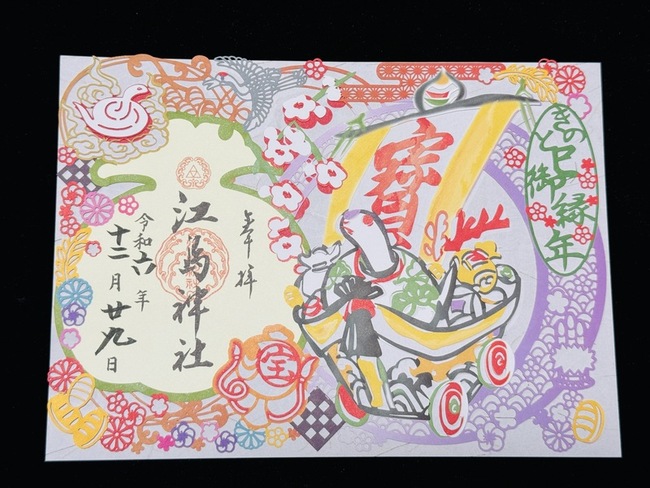 きのと巳御縁年
寳
奉拝
江島神社
令和六年
十二月廿九日
宝